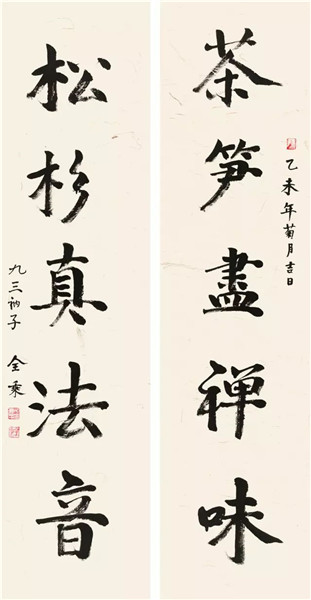 茶笋盡禅味
乙未年菊月吉日
松杉真法音
九三衲子 全乘